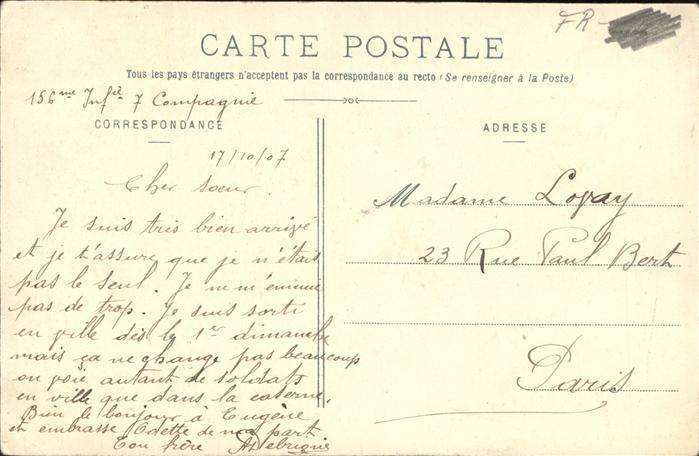 FR
CARTE POSTALE
Tous les pays étrangers n'acceptent pas la correspondance au recto (Se renseigner à la Poste)
156me Infie 7 Compagnie
CORRESPONDANCE
17/10/07
Cher sœur.
Je suis tris bien arrivé
et je t'assure que je n'étais
pas le seul. Je ne m'ennuie
pas de trop. Je suis sorti
en ville dès le 1er dimanche
mais ça ne change pas beaucoup
on voie autant de soldats
en ville que dans la caserne.
Bien le bonjour à Eugène
et embrasse Odette de ma part
Ton frère
ADRESSE
Madame
23 Rue Paul Bert
Paris